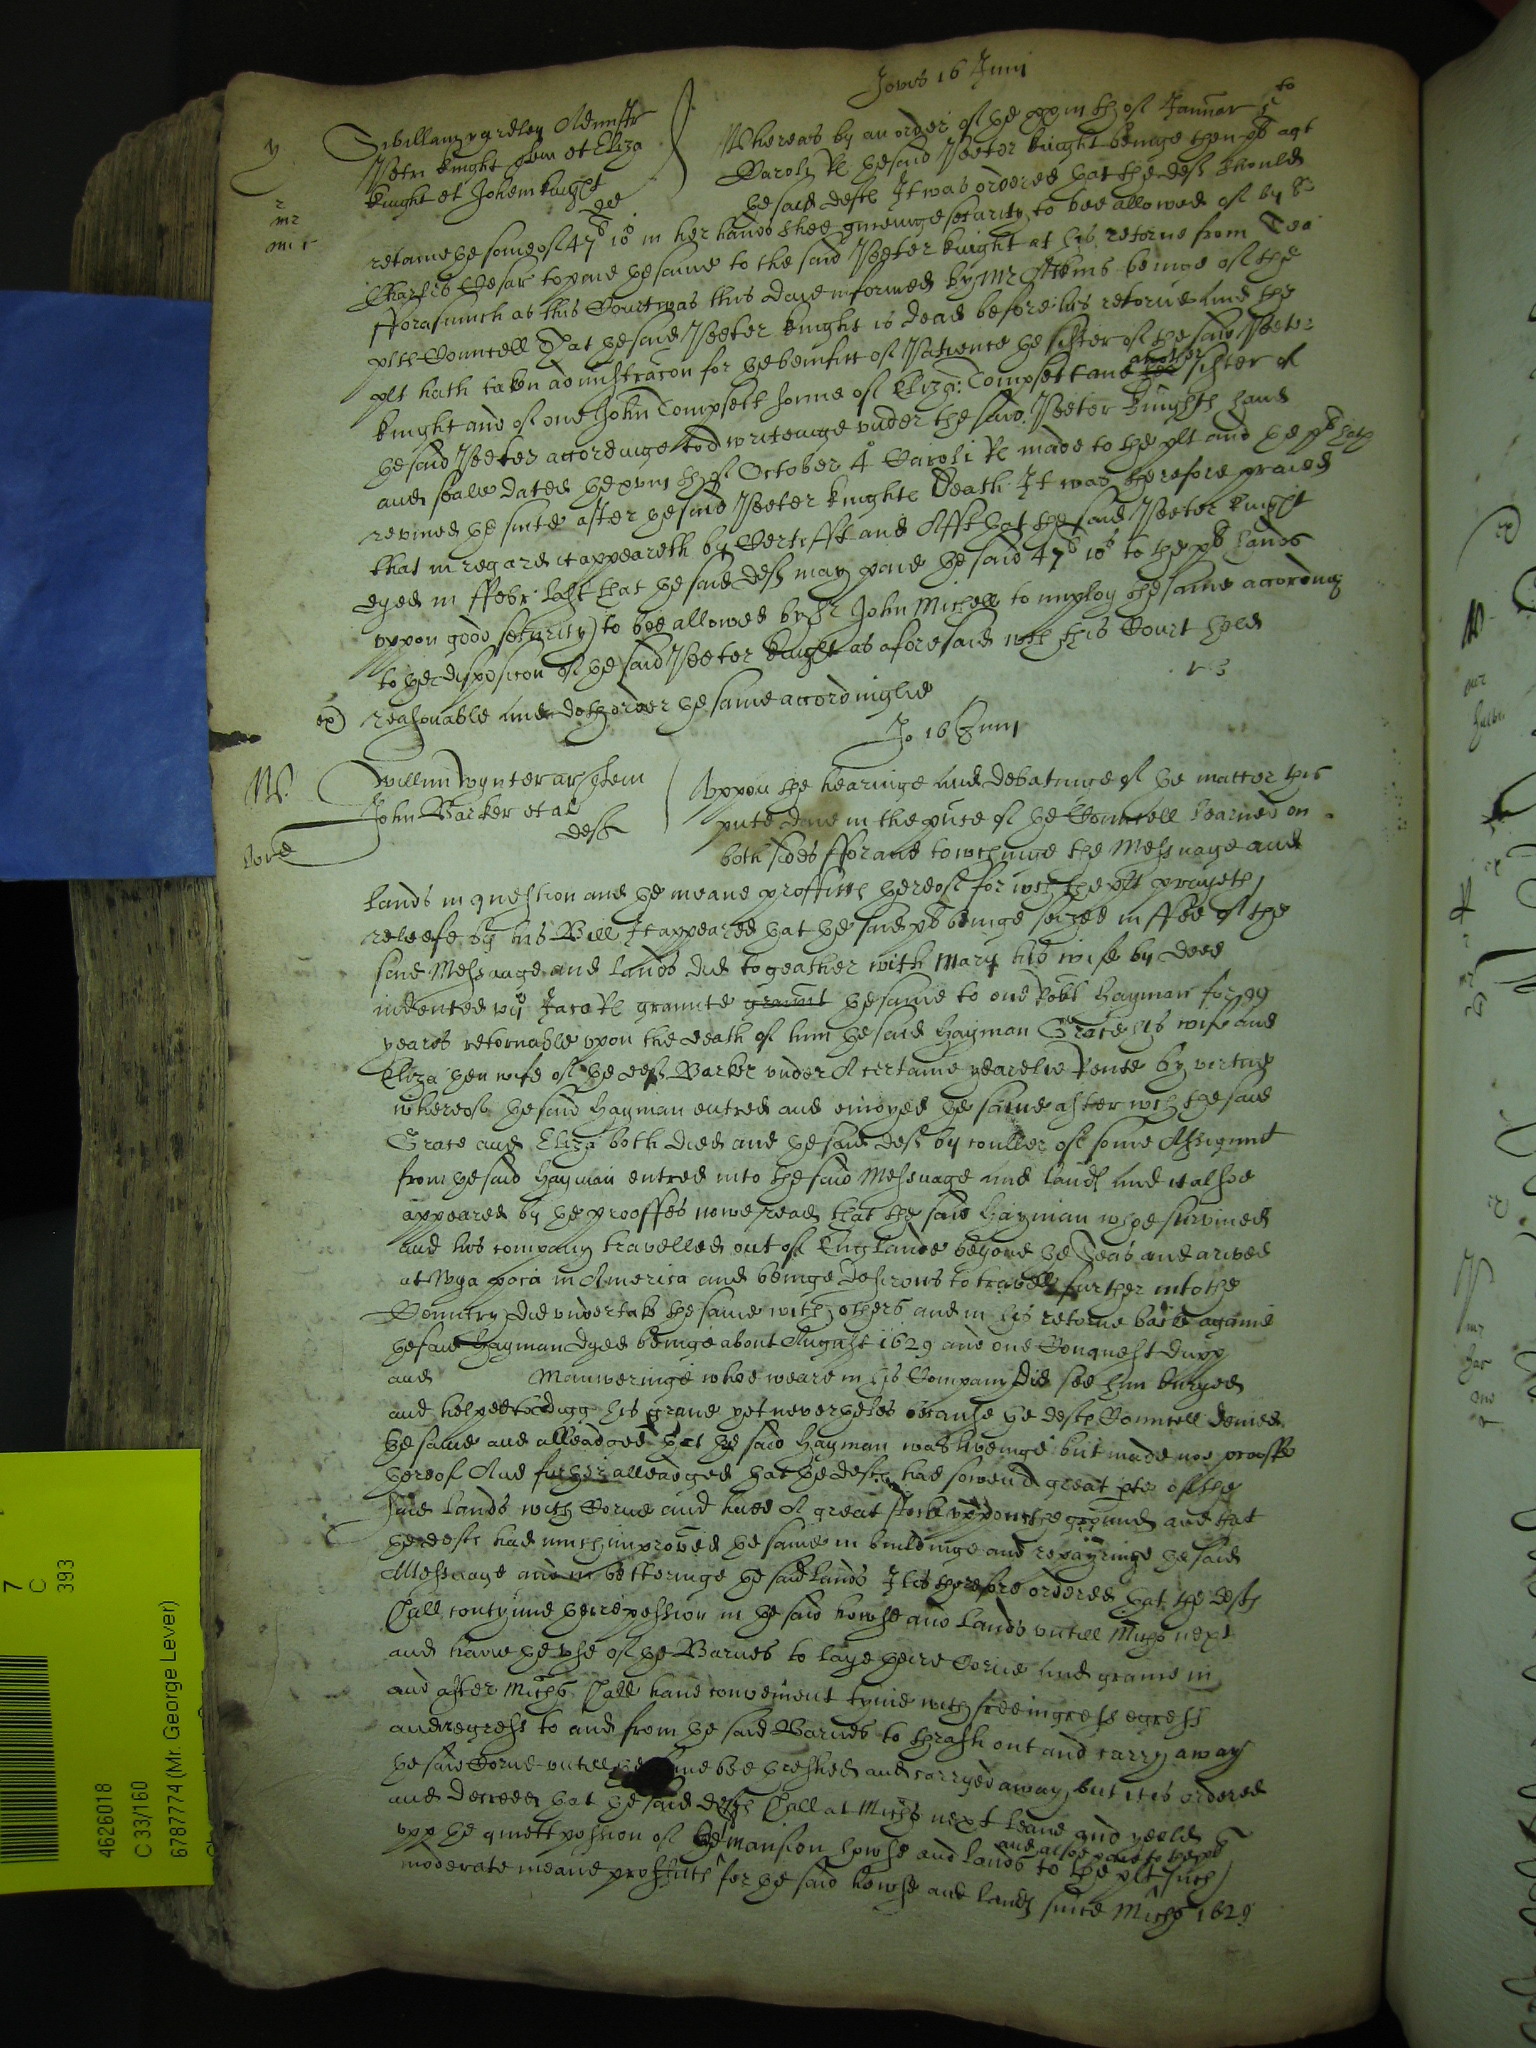 Jovis 16 Junii
Sibillam yardley Administr
Petri knight quer et Eliza
knight et Johem knight
de
Whereas by an order of the xxiiith of Januar 5to
Caroli Re the said Peeter knight beinge then plt agt
the said deftes It was ordered that the deft should
retaine the some of 47li 10s in her hands shee giveinge security to bee allowed of by Sr
Charles Cesar to paie the same to the said Peeter knight at his retorne from Sea
fforasmuch as this Court was this daie informed by Mr Atkins beinge of the
plts Councell That the said Peeter knight is dead before his retorne And the
plt hath taken administracon for the benifitt of Patience the sister of the said Peeter
knight and of one John Compsett sonne of Eliza: Compsett and another sister of
the said Peeter accordinge to a writeinge under the said Peeter knights hand
and seale dated the xviiith of October 4o Caroli Re made to the plt and the plt hath
revived the suite after the said Peeter knightes Death It was therefore praied
that in regard it appeareth by Certifft and Afft that the said Peeter knight
dyed in ffebr last that the said deft may paie the said 47li 10s to the plts hands
uppon good security to bee allowed by Sr John Michell to imploy the same according
to the disposicon of the said Peeter knight as aforesaid wch this Court held
reasonable And doth order the same accordinglie
ex)
Jo 16 Junii
Willm Wynter ar quer
John Barker et al
deftes
Uppon the hearinge and debatinge of the matter this
pnte daie in the pnce of the Councell learned on
both sides ffor and towchinge the Messuage and
lands in question and the meane proffittes thereof for wch the plt prayeth
releefe by his Bill It appeared that the said plt beinge seized in ffee of the
said Messuage and lands did togeather with Mary his wife by deed
indented Jaco Re graunte graunt the same to one Robt Hayman for 99
yeares retornable upon the death of him the said Hayman Grace his wife and
Eliza then wife of the deft Barker under A certaine yearelie Rente by vertue
whereof the said Hayman entred and enioyed the same after wch the said
Grace and Eliza both died and the said deft by couller of some Assignmt
from the said Hayman entred into the said Messuage and landes And it alsoe
appeared by the prooffes nowe read that the said Hayman whoe survived
and his company travelled out of Englande beyond the Seas and arived
at Wya poca in America and beinge desirous to travell further into the
Countrey did undertake the same with others and in his retorne backe againe
the said Hayman dyed beinge about August 1629 and one Conquest Dupp
and Manweringe whoe weare in his Company did see him buryed
and helped to digg his grave yet nevertheles because the deftes Councell denied
the same and alleadged that the said Hayman was liveinge but made noe prooffe
thereof And further alleadged that the deftes had sowen a great pte of the
said lands with Corne and have A great stocke uppon the ground and that
the deftes had much improved the same in buildinge and repayringe the said
Messuage and in betteringe the said lands It is therefore ordered that the deftes
shall contynue theire possession in the said howse and lands untill Michs next
and have the use of the Barnes to laye theire Corne and graine in
and after Michs shall have convenient tyme with free ingresse egresse
and regresse to and from the said Barnes to thrash out and carry away
the said Corne untill the same bee threshed and carryed away, but it is ordered
and decreed that the said deftes shall at Michs next leave and yeeld
upp the quiett possion of the mansion howse and lands to the plt and alsoe paie to the plt such
moderate meane proffittes for the said howse and landes since Michs 1629
7
C
393
4626018
C 33/160
6787774 (Mr. George Lever)